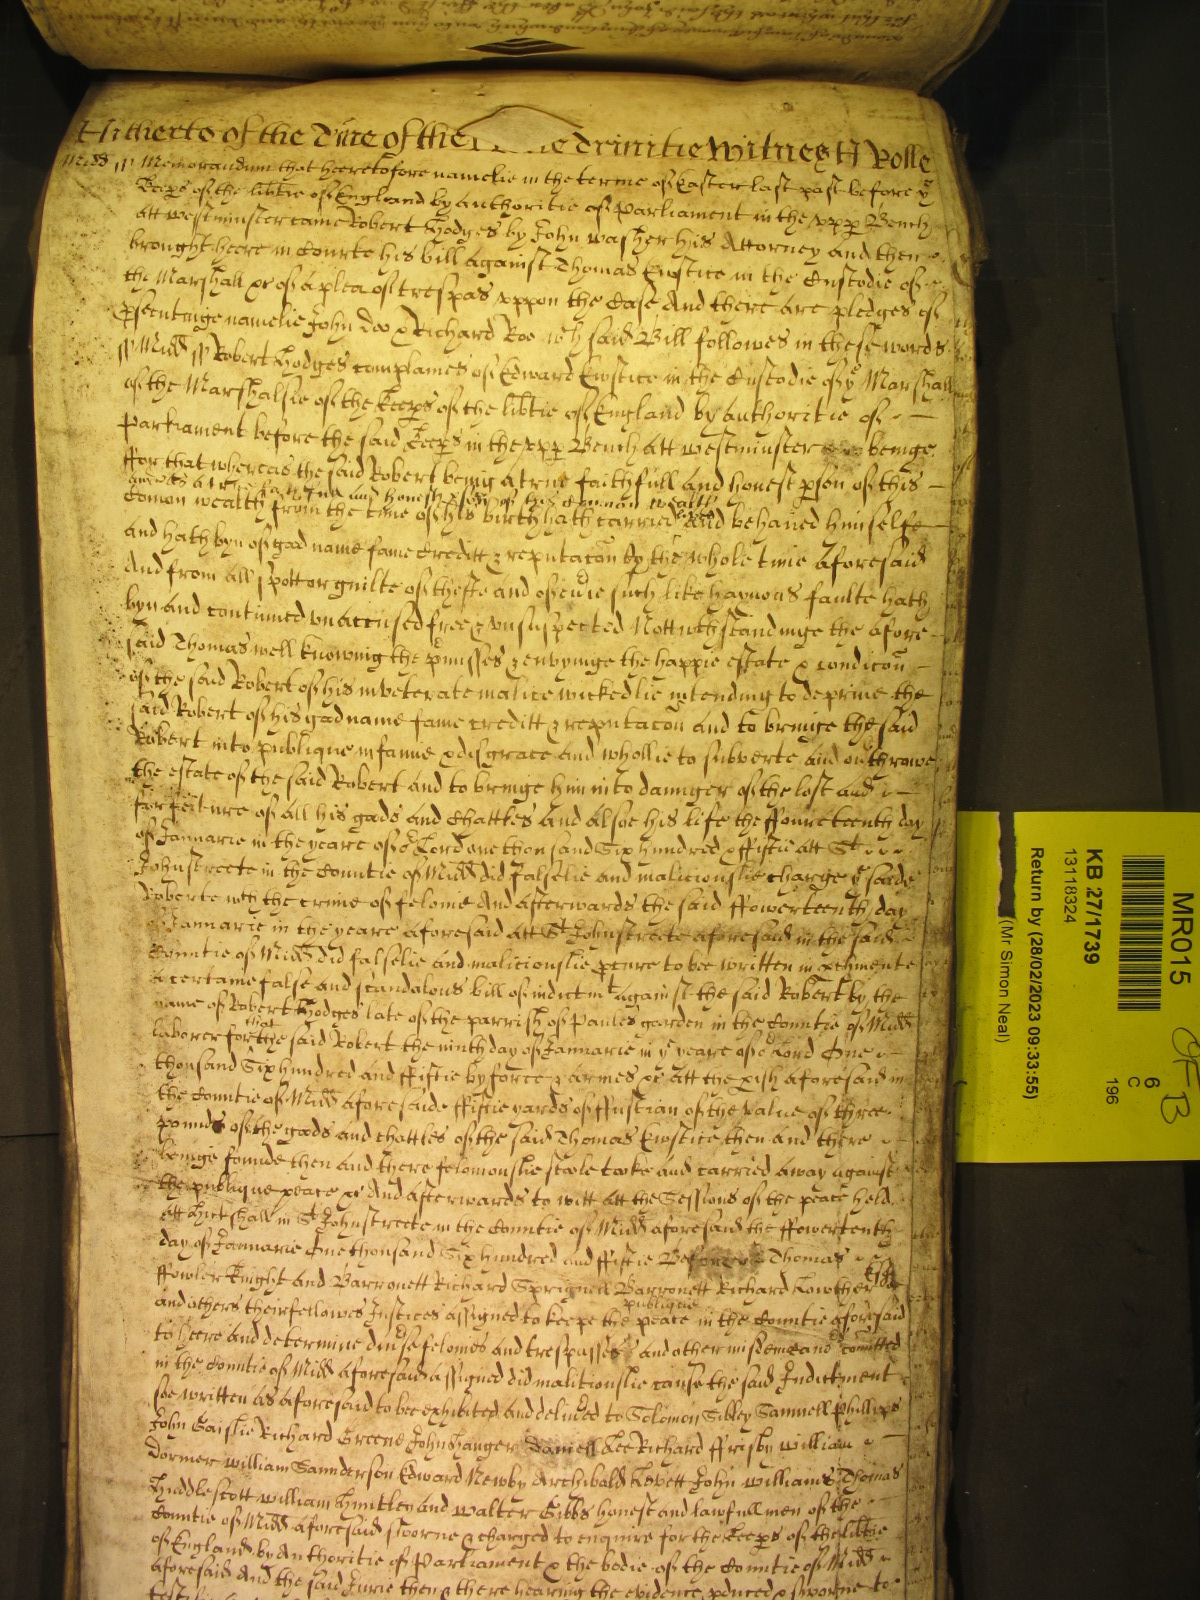 Hitherto of the Tme of the Trinitie Witnes H Rolle
Midd ss Memorandum that heeretofore namelie in the terme of Easter last past before ye
Keeps of the libtie of England by authoritie of Parliament in the vpp Bench
att Westminster came Robert Hodges by John Washer his Attorney and then
brought heere in Courte his bill against Thomas Ewstice in the Custodie of
the Marshall &c of a plea of trespas vppon the Case And there are pledges of
psecutinge namelie John Doo & Richard Roo wch said Bill followes in these words
ss Midd ss Robert Hodges complaines of Edward Ewstice in the Custodie of ye Marshall
of the Marshalsie of the Keeps of the libtie of England by authoritie of
Parliament before the said Keeps in the vpp Bench att Westminster beinge
ffor that whereas the said Robert being a true faithfull and honest pson of this
and honest pson of this Comon wealth
Comon wealth from the time of his birth hath carried and behaued himselfe
and hath byn of good name fame Creditt & reputacon by the whole time aforesaid
And from all spott or guilte of thefte and of eu'ie such like haynous faulte hath
byn and continued vnaccused free & vnsuspected Nottwthstandinge the afore
said Thomas well knowing the pmisses & envyinge the happie estate & condicon
of the said Robert of his inveterate malice wickedlie intending to deprive the
said Robert of his good name fame creditt & reputacon and to bringe the said
Robert into publique infamie & disgrace and whollie to subverte and ou'throwe
the estate of the said Robert and to bringe him into daunger of the lost and
forfeiture of all his goods and Chattles and alsoe his life the ffoureteenth day
of Januarie in the yeare of or Lord one thousand Six hundred & ffiftie att St
Johnstreete in the Countie of Midd did falselie and maliciouslie charge ye saide
Roberte wth the crime of felonie And afterwards the said ffowerteenth day
of Januarie in the yeare aforesaid att St Johnstreete aforesaid in the said
Countie of Midd did falselie and maliciouslie pcure to bee written in pchmente
a certaine false and scandalous bill of indictmt against the said Robert by the
name of Robert Hodges late of the parrish of Paules garden in the Countie of Midd
laborer for that the said Robert the ninth day of Januarie in ye yeare of or Lord One
thousand Six hundred and ffiftie by force & armes &c att the pish aforesaid in
the Countie of Midd aforesaide ffiftie yards of ffustian of the value of three
pounds of the goods and chattles of the said Thomas Ewstice then and there
beinge founde then and there feloniouslie stoole tooke and carried away against
the publique peace &c And afterwards to witt att the Sessions of the peace held
att Hickshall in St Johnstreete in the Countie of Midd aforesaid the ffowertenth
day of Januarie One thousand Six hundred and ffiftie Before Thomas
ffowler Knight and Barronett Richard Sprignell Barronett Richard Lowther
and others their fellowes Justices assigned to keepe the publique peace in the Countie aforesaid
to heere and determine diu'se felonies and trespasses and other misdemeanors comitted
in the Countie of Midd aforesaid assigned did malitiouslie cause the said Indictment
soe written as aforesaid to bee exhibited and deliu'ed to Solomon Sibley Samuell Phillipps
John Gaislie Richard Greene John Hanger Daniell Lee Richard ffrisby William
Dormer William Saunderson Edward Newby Archibald Lovett John Williams Thomas
Huddlescott William Huntley and Walter Gibbs honest and lawfull men of the
Countie of Midd aforesaid sworne & charged to enquire for the Keeps of the libtie
of England by Authoritie of Parliament & the bodie of the Countie of Midd
aforesaid And the said Jurie then & there hearing the evidence pduced & sworne to
MR015
KB 27/1739
13118324
6
C
196
Return by (28/02/2023 09:33:55)
(Mr Simon Neal)